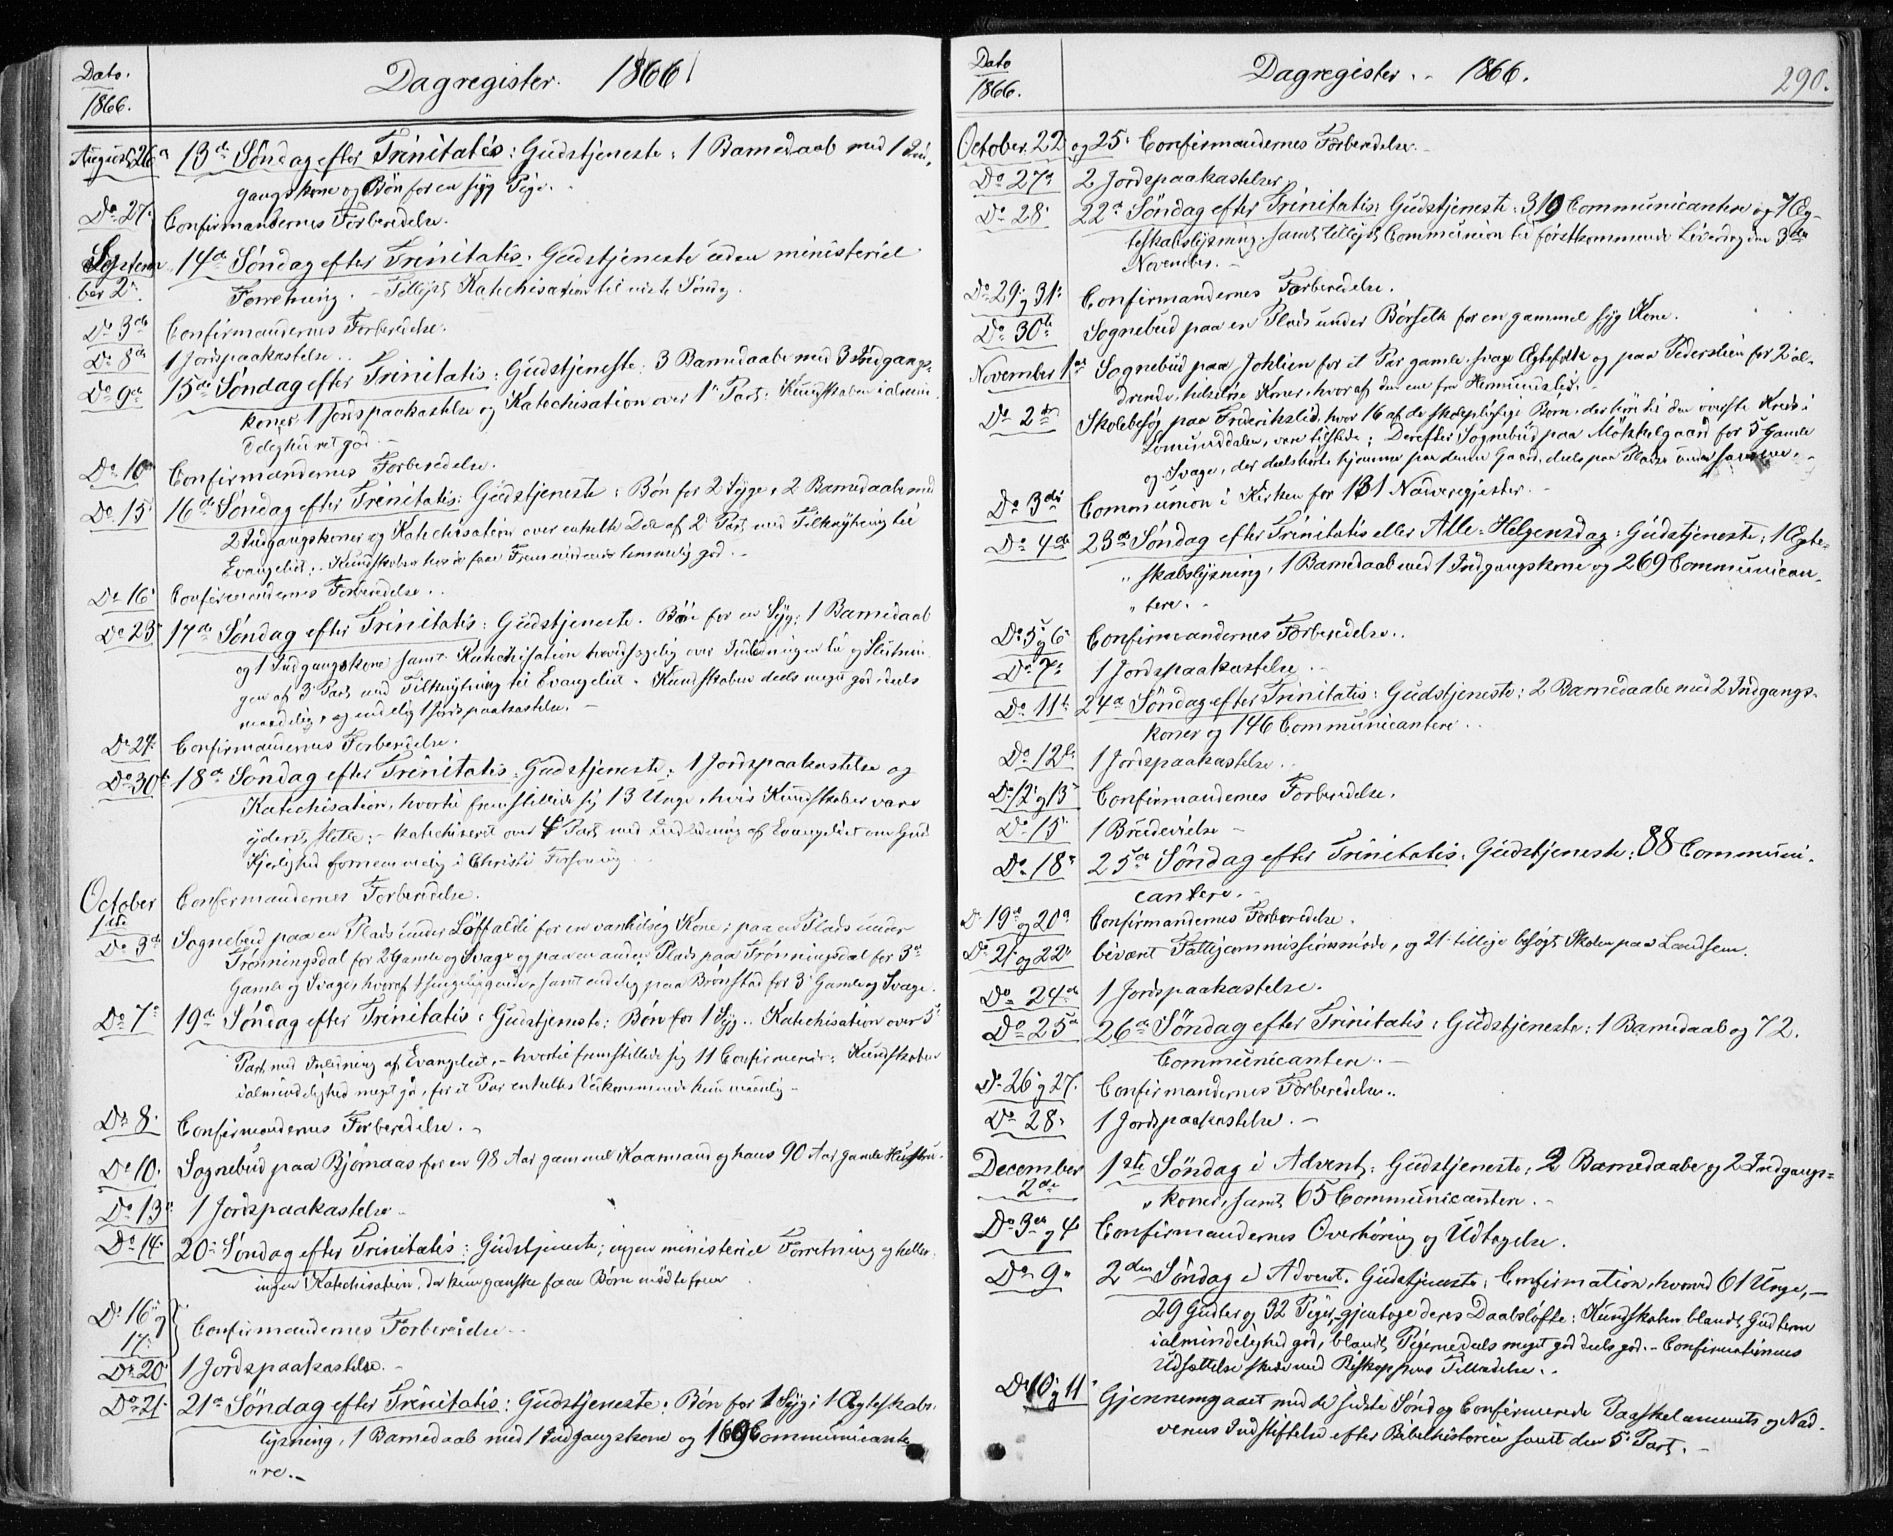 Dato.
1866.
Dagregister. 1866.
August 26a 13de Søndag efter Trinitatis: Gudstjeneste: 1 Barnedaab med 1 Ind-
gangskone og Bøn for en syg Pige.
Do 27. Confirmandernes Forberedelse.
Septem- 14de Søndag efter Trinitatis. Gudstjeneste uden ministeriel
ber 2. Forretning. - Tillyst Katechisation til næste Søndag.
Do 3de Confirmandernes Forberedelse.
Do 8de 1 Jordspaakastelse.
Do 9de 15de Søndag efter Trinitatis: Gudstjeneste: 3 Barnedaabe med 3 Indgangs-
koner, 1 Jordspaakastelse og Katechisation over 1 Part: Kundskaben i almin-
delighed ret god. -
Do 10 Confirmandernes Forberedelse.
Do 15 16de Søndag efter Trinitatis: Gudstjeneste: Bøn for 2 Syge, 2 Barnedaabe med
2 Indgangskoner og Katechisation over enkelte Dele af 2 Part med Tilknytning til
Evangeliet: Kundskaben hos de faa Fremmødende temmelig god. -
Do 16 Confirmandernes Forberedelse.
Do 23 17de Søndag efter Trinitatis: Gudstjeneste. Bøn for en Syg; 1 Barnedaab
og 1 Indgangskone samt Katechisation hovedsagelig over Indledningen til og Slutnin-
gen af 3 Part med Tilknytning til Evangeliet. Kundskaben deels meget god, deels
maadelig, og endelig 1 Jordspaakastelse. -
Do 24. Confirmandernes Forberedelse.
Do 30te 18de Søndag efter Trinitatis: Gudstjeneste: 1 Jordspaakastelse og
Katechisation, hvortil fremstillede sig 13 Unge, hvis Kundskaber vare
yderst slette: - katechiseret over 4 Part med Indledning af Evangeliet om Guds
Kjerlighed fornemmelig i Christi Forsoning
October Confirmandernes Forberedelse.
1ste
Do 3de Sognebud paa en Plads under Løffaldli for en vanhelsig Kone; paa en Plads under
Trønningsdal for 2 Gamle og Svage og paa en anden Plads paa Trønningsdal for 3
Gamle og Svage, hvoraf 1 sengeliggende, samt endelig paa Brønstad for 3 Gamle og Svage.
Do 7 19de Søndag efter Trinitatis: Gudstjeneste: Bøn for 1 Syg. Katechisation over 5
Part med Indledning af Evangeliet, - hvortil fremstillede sig 11 Confirmerede: Kundskaben
i almindelighed meget god, for et Par enkeltes Vedkommende kun maadelig -
Do 8. Confirmandernes Forberedelse. -
Do 10. Sognebud paa Bjørnaas for en 98 Aar gammel Kaarmand og hans 90 Aar gamle Hustru.
Do 13 1 Jordspaakastelse -
Do 14. 20 Søndag efter Trinitatis: Gudstjeneste; ingen ministeriel Forretning og heller
ingen Katechisation, da kun ganske faae Børn mødte frem
Do 16 og
17 Confirmandernes Forberedelse -
Do 20 1 Jordspaakastelse. -
Do 21. 21de Søndag efter Trinitatis: Gudstjeneste: Bøn for 1 Syg; 1 Ægteskabs-
lysning, 1 Barnedaab med 1 Indgangskone og 169 Communicante-
"re. -
Dato
1866.
Dagregister. - 1866.
290.
October 22 og 25. Confirmandernes Forberedelse. -
Do 27de 2 Jordspaakastelser
Do 28. 22de Søndag efter Trinitatis: Gudstjeneste: 310 Communicantere og 1 Æg-
teskabslysning, samt tillyst Communion til førstkommende Løverdag den 3die
November. -
Do 29 og 31 Confirmandernes Forberedelse.
Do 30te Sognebud paa en Plads under Børseth for en gammel syg Kone.
November 1ste Sognebud paa Johlien for et Par gamle svage Ægtefolk og paa Pederslien for 2 al-
drende, helseløse Koner, hvoraf den ene fra Hermundslid. -
Do 2den Skolebesøg paa Frederikslid, hvor 16 af de skolepligtige Børn, der høre til den øverste Kreds i
Lomunddalen, vare tilstede; Derefter Sognebud paa Møkkelgaard for 5 Gamle
og Svage, der deels hørte hjemme paa denne Gaard, deels paa Pladse under samme. -
Do 3die Communion i Kirken for 131 Nadveregjester. -
Do 4de 23de Søndag efter Trinitatis eller Alle-Helgensdag: Gudstjeneste: 1 Ægte-
"skabslysning, 1 Barnedaab med 1 Indgangskone og 269 Communican-
"tere. -
Do 5 og 6 Confirmandernes Forberedelse.
Do 7. 1 Jordspaakastelse
Do 11te 24de Søndag efter Trinitatis: Gudstjeneste: 2 Barnedaabe med 2 Indgangs-
koner og 146 Communicantere.
Do 12te 1 Jordspaakastelse.
Do 12 og 13 Confirmandernes Forberedelse.
Do 15 1 Brudevielse -
Do 18 25de Søndag efter Trinitatis: Gudstjeneste: 88 Communi-
cantere. -
Do 19de og 20de Confirmandernes Forberedelse.
Do 21 og 22 bivænt Fattigcommissionsmøde, og 21 tillige besøgt Skolen paa Landsem.
Do 24de 1 Jordspaakastelse.
Do 25de 26de Søndag efter Trinitatis: Gudstjeneste: 1 Barnedaab og 72.
Communicantere. -
Do 26 og 27. Confirmandernes Forberedelse.
Do 28. 1 Jordspaakastelse. -
December 1ste Søndag i Advent: Gudstjeneste, 2 Barnedaabe og 2 Indgangs-
2den "koner, samt 65 Communicantere. -
Do 3die og 4 Confirmandernes Overhøring og Udtagelse.
Do 9. 2den Søndag i Advent. Gudstjeneste: Confirmation, hvorved 61 Unge, -
29 Gutter og 32 Piger, gjentoge deres Daabsløfte: Kundskaben blandt Gutterne
i almindelighed god, blandt Pigerne deels meget god deels god. - Confirmationens
Udsættelse skede med Biskoppens Tilladelse. -
Do 10 og 11 Gjennemgaaet med de sidste Søndag Confirmerede Paaskelammets og Nad-
verens Indstiftelse efter Bibelhistorien samt den 5 Part. -